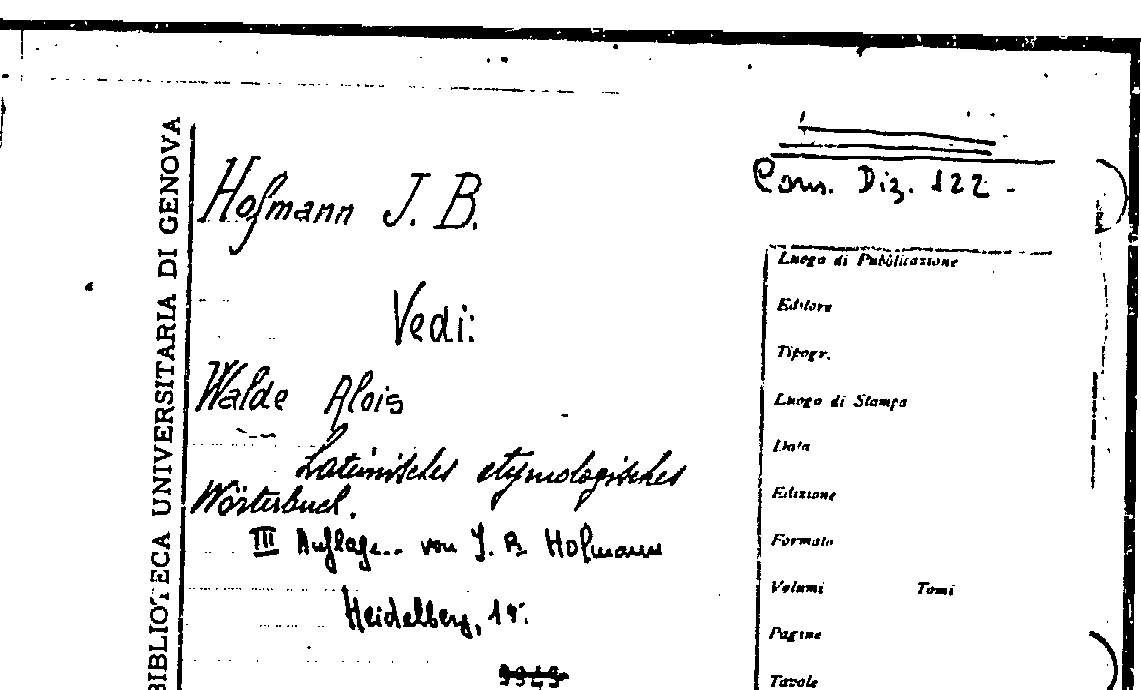 BIBLIOTECA UNIVERSITARIA DI GENOVA
Hofmann J. B.
Cons. Diz. 122 -
Vedi:
Walde Alois
Lateinisches etymologisches
Wörterbuch.
III Auflage.. von J. B. Hofmann
Heidelberg, 19
Luogo di Pubblicazione
Editore
Tipogr.
Luogo di Stampa
Data
Edizione
Formato
Volumi Tomi
Pagine
Tavole